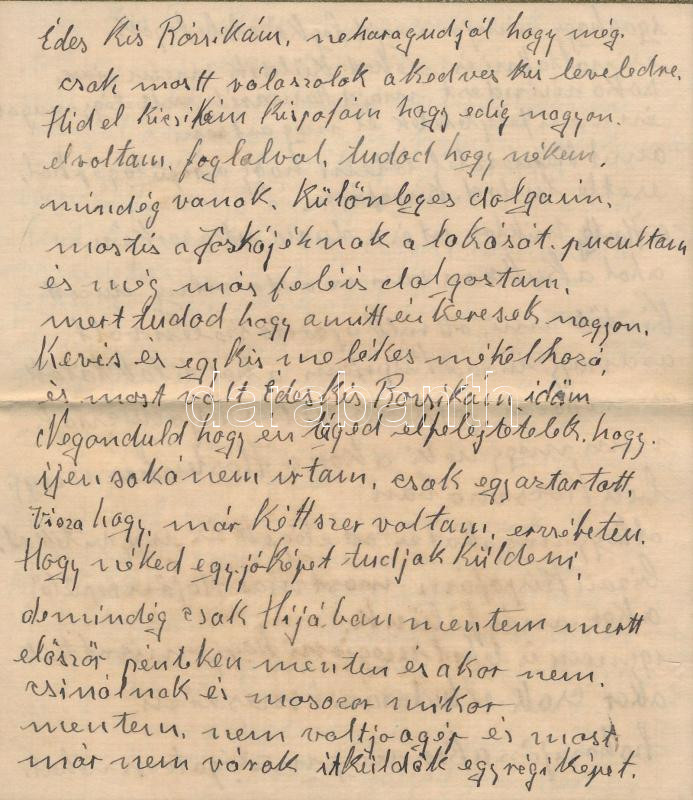 Édes Kis Rózsikám, neharagudjál hogy még.
csak mostt válaszolok akedves kis leveledre.
Hidel Kicsikém Kispofám hogy edig nagyon.
elvoltam, foglalval, tudod hogy nékem,
mindég vanok. Különleges dolgaim,
mostis a Joskájéknak alokását. pucultam
és még más feléis dolgostam,
mert tudod hogy amitt én Keresek nagyon,
Kevés és egykis melékes mékelhozá,
és most vólt Édes Kis Rozsikám, idöm
Neganduld hogy én téged elfelejtötelek, hogy.
ijen sokánem irtam, csak egyaztartott,
visza hogy, már Kéttszer voltam, erzsébeten.
Hogy néked egyjóképet tudjak Küldeni,
demindég csak Hijában mentem mertt
elöször pénteken menten és akor nem.
csinálnak és masozor mikor
mentem. nem voltjoagép és most,
már nem várok itküldök egyrégiképet.
darabanth